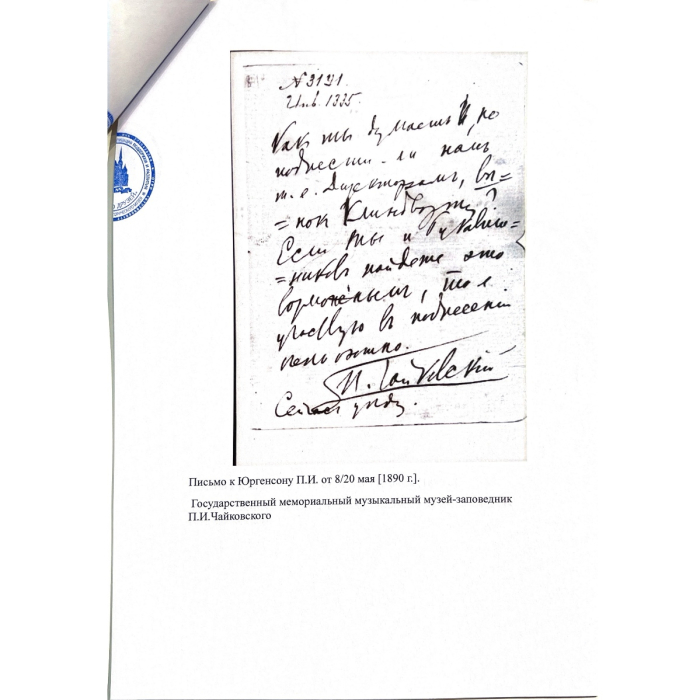 N 3121
Инв. 1335.
Как ты думаешь, не
поднести-ли нам
т. е. Директорам, ве=
=нок Клиндворту?
Если ты и Рукавиш=
=никовъ найдете это
возможнымъ, то я
участвую въ поднесенiи
П. Чайковскiй
Сейчасъ уеду.
Письмо к Юргенсону П.И. от 8/20 мая [1890 г.].
Государственный мемориальный музыкальный музей-заповедник
П.И.Чайковского